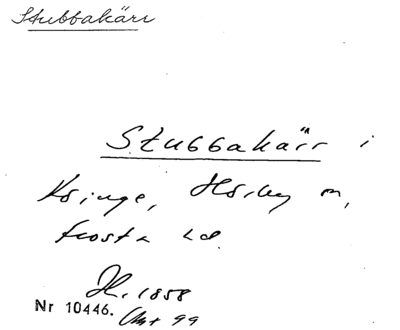 Stubbakärr
Stubbakärr i
Kringe, Hörby sn,
Frosta hd.
H. 1858
Nr 10446.
99